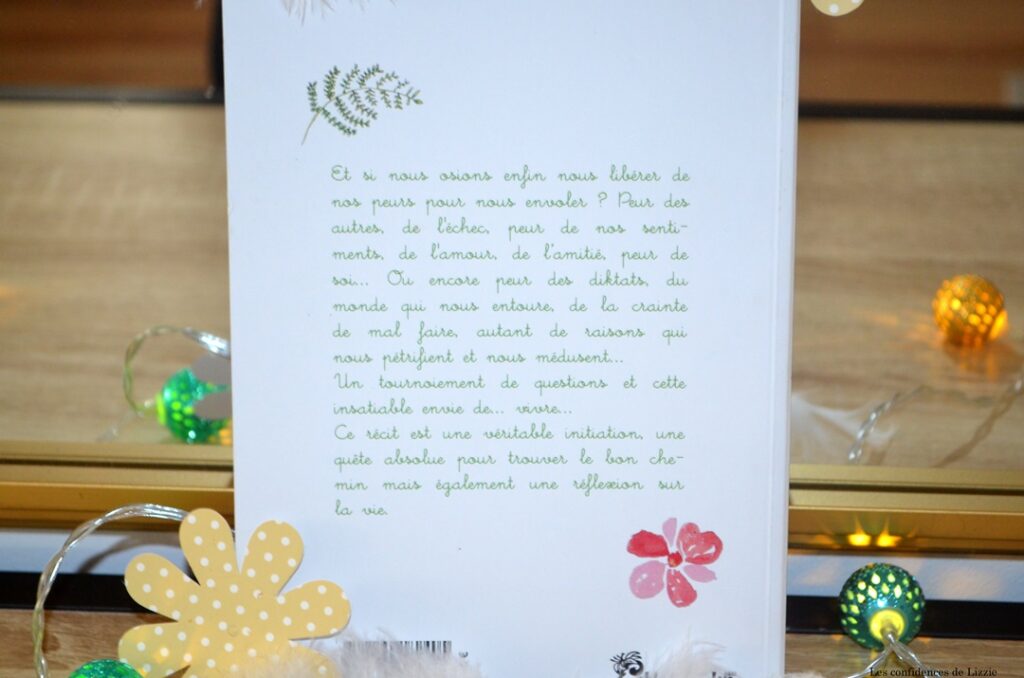 Et si nous osions enfin nous libérer de
nos peurs pour nous envoler ? Peur des
autres, de l'échec, peur de nos senti-
ments, de l'amour, de l'amitié, peur de
soi... Ou encore peur des diktats, du
monde qui nous entoure, de la crainte
de mal faire, autant de raisons qui
nous pétrifient et nous médusent...
Un tournoiement de questions et cette
insatiable envie de... vivre...
Ce récit est une véritable initiation, une
quête absolue pour trouver le bon che-
min mais également une réflexion sur
la vie.
Les confidences de Lizzie